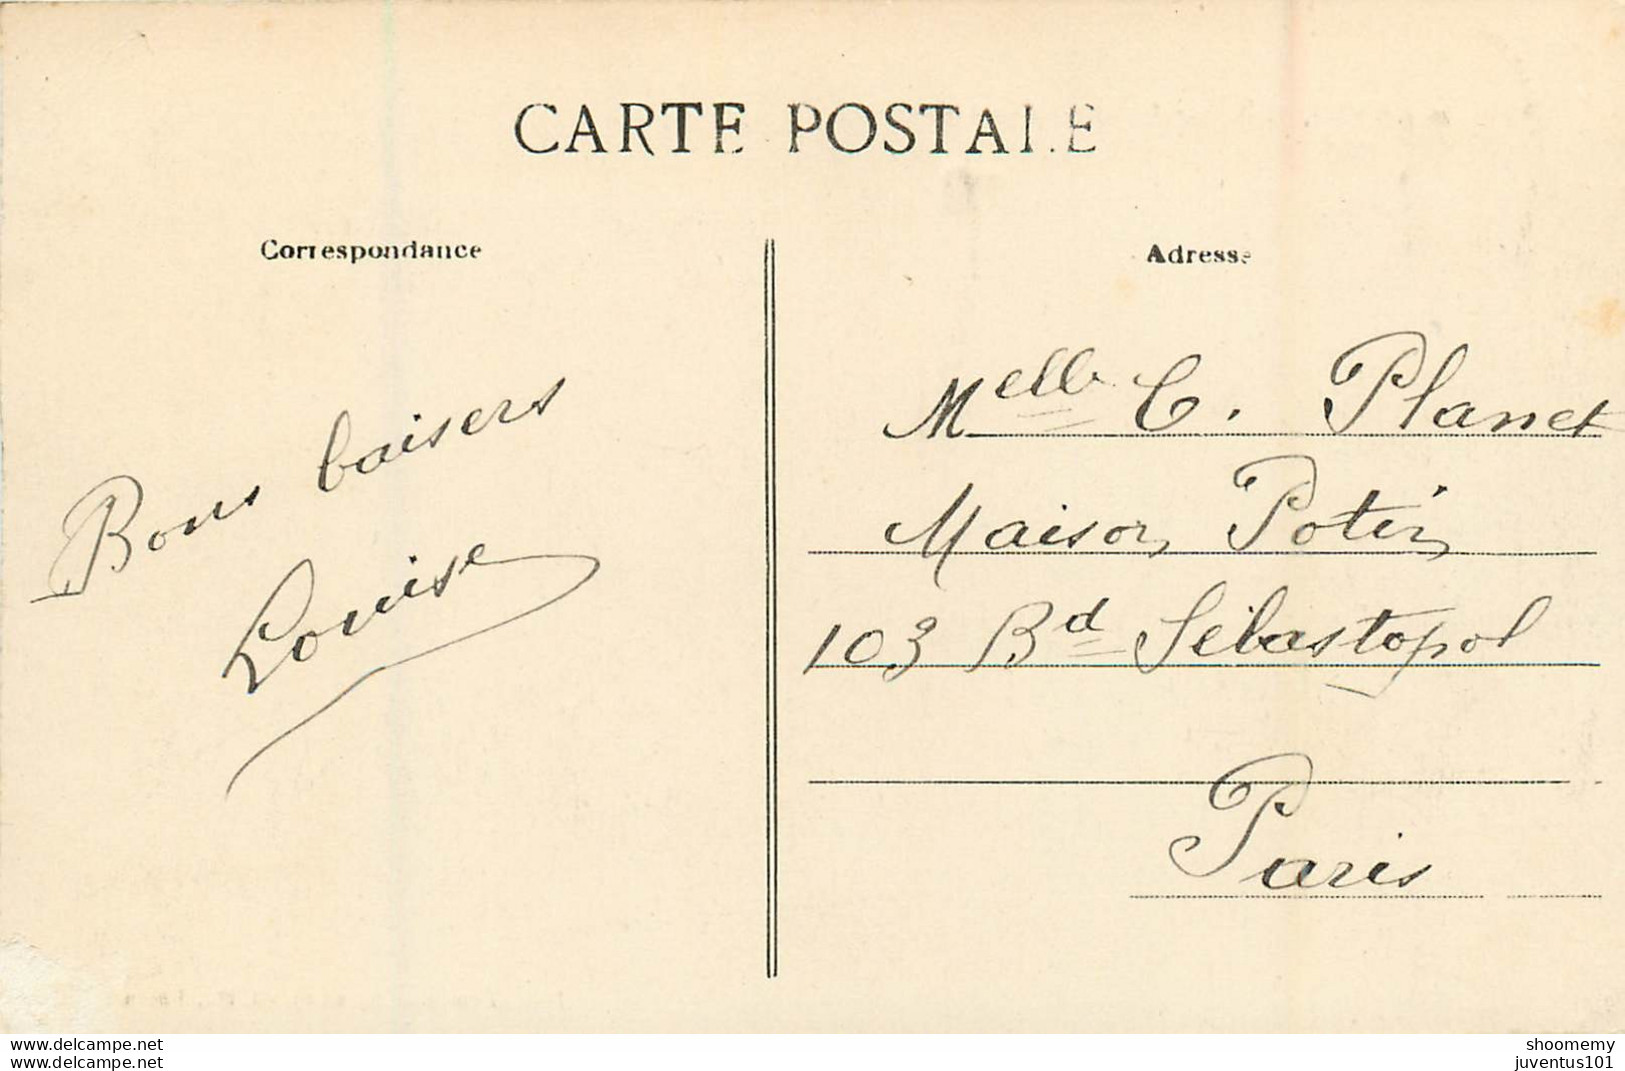 CARTE POSTALE
Correspondance
Adresse
Bons baisers
Louise
Melle C. Planet
Maison Potin
103 Bd Sébastopol
Paris
www.delcampe.net
www.delcampe.net
shoomemy
juventus101